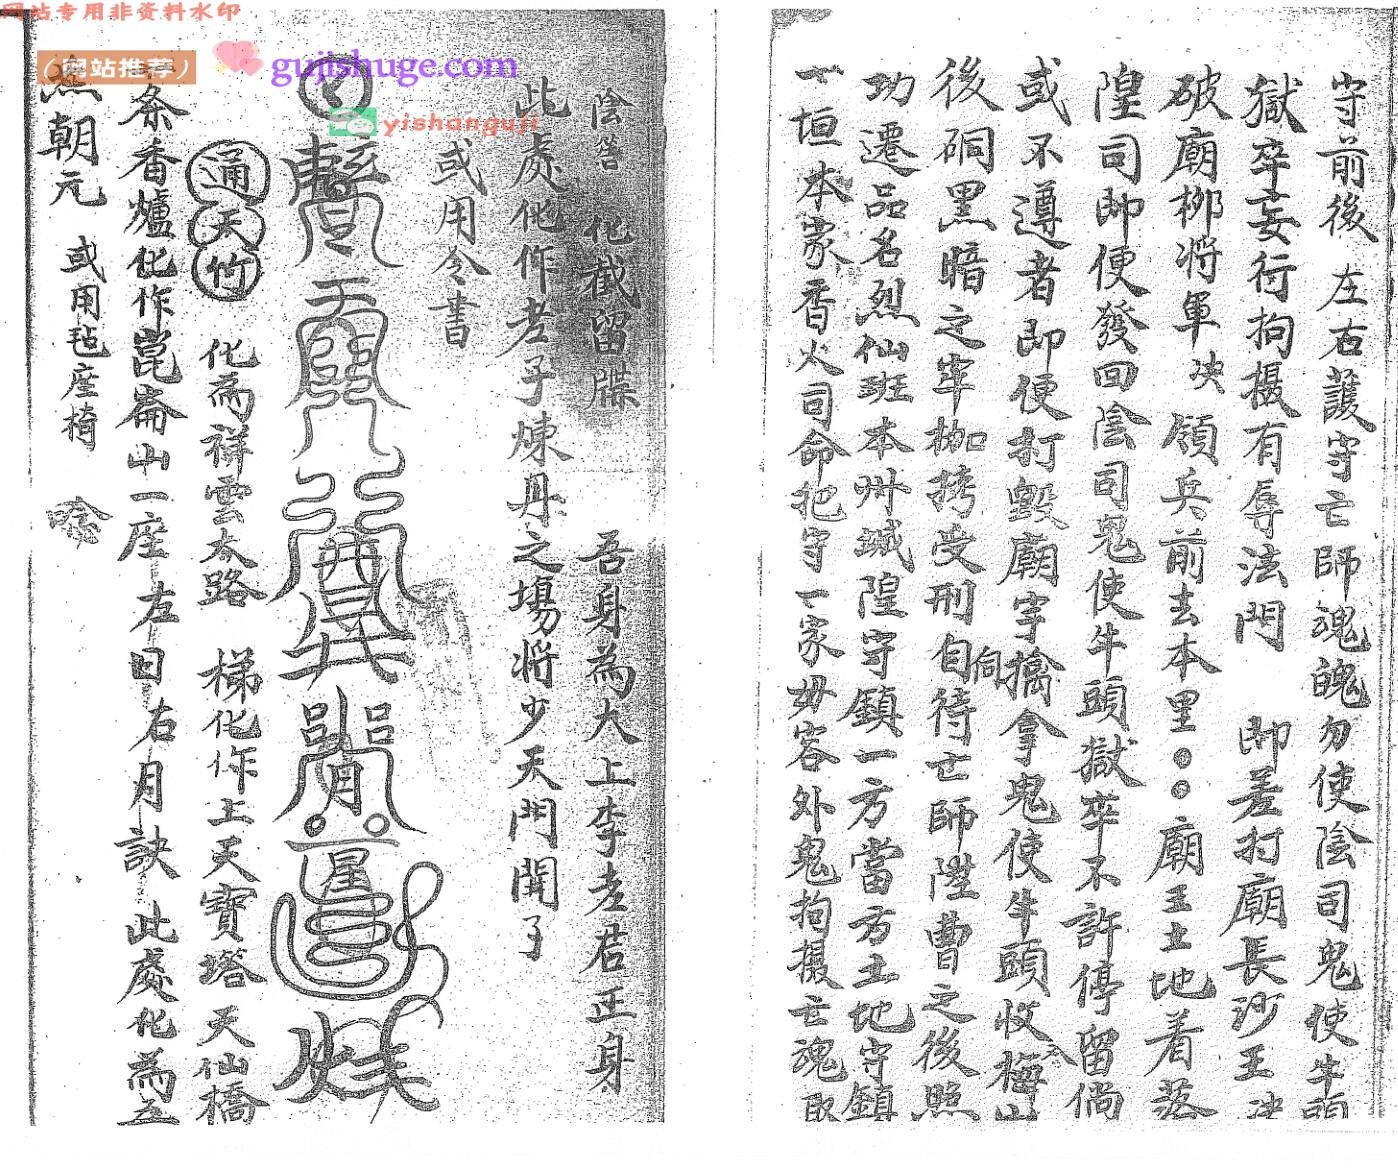 网站专用非资料水印
（网站推荐）
gujishuge.com
yishanguji
守前後 左右護守亡師魂魄勿使陰司鬼使牛頭
獄卒妄行拘攝有辱法門 即差打廟長沙王決
破廟柳将軍决 領兵前去本里 廟王土地着落
隍司即便發回陰司鬼使牛頭獄卒不許停留倘
或不遵者即便打毀廟宇擒拿鬼使牛頭收梅山
後硐黑暗之牢枷拷受刑自待亡師陞曹之後照
功遷品名烈仙班本州城隍守鎮一方當方土地守鎮
一垣本家香火司命把守一家毋容外鬼拘攝亡魂
陰答 化截留牒 吾身為大上李老君正身
此處化作老子煉丹之場将少天門開了
或用令書
通天竹 化為祥雲大路 梯化作上天寶塔天仙橋
条香爐化作崑崙山一座左日右月訣 此處化為五
朝元 或用毡座椅